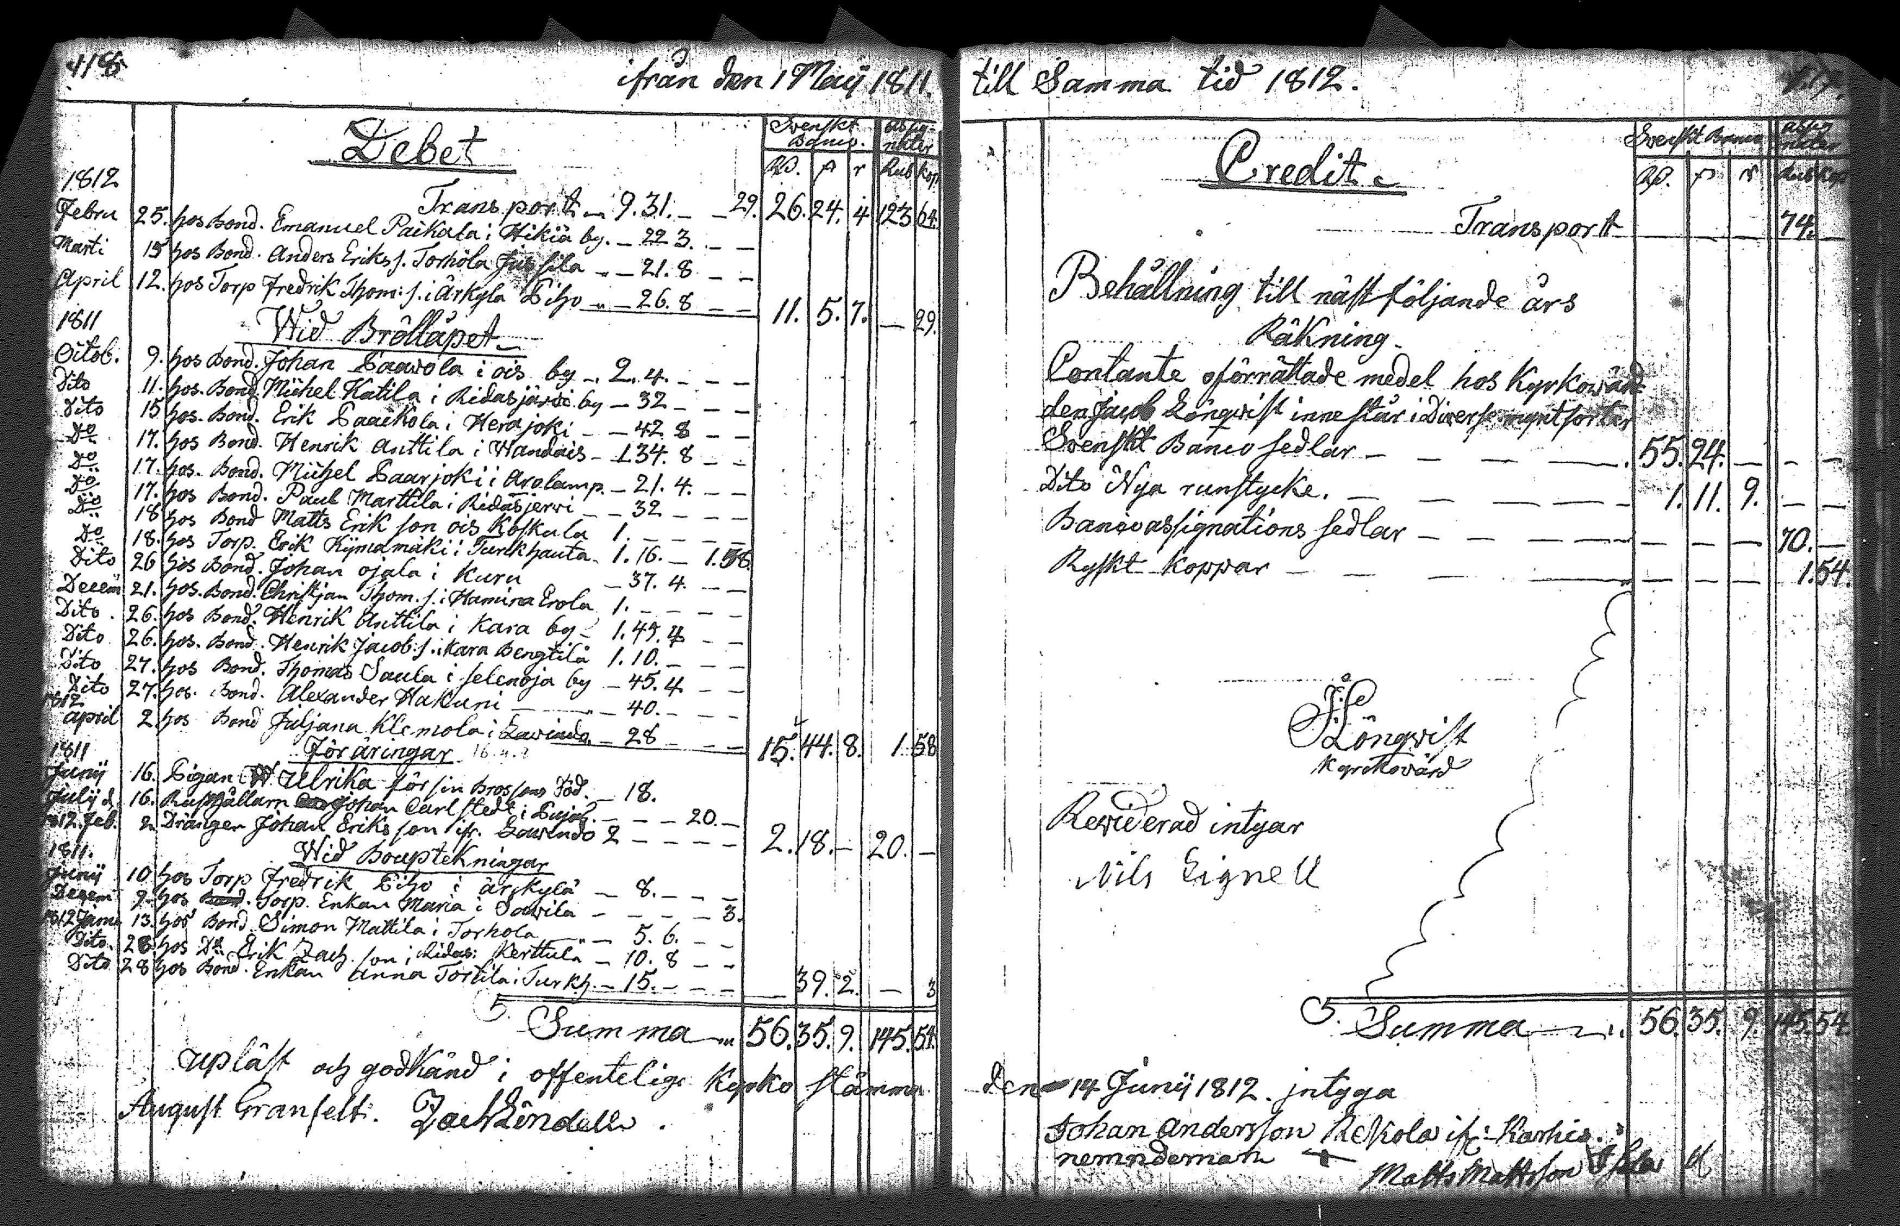 418
ifrån den 1 Maÿ 1811.
Debet
Svenskt Banco. Assignater
Rd. ß r Rub Kop
1812
Transport 9.31. 29. 26. 24. 4 123 64
Febru 25. hos Bond. Emanuel Paikala i Hikiä by. 22 3.
Marti 15 hos Bond. Anders Eriks s. Torhola Jussila 21. 8
April 12. hos Torp Fredrik Thom: s. i Ärkylä Eiho 26. 8 11. 5. 7. 29.
1811
Wid Bröllåpet
Octob. 9. hos Bond. Johan Laavola i ois by 2. 4.
Dito 11. hos. Bond. Michel Katila i Ridasjärvi by 32
Dito 15 hos. Bond. Erik i Herajoki 42 8
Do 17. hos Bond. Henrik Anttila i Wandais 1.34. 8
Do 17. hos. Bond. Michel Laarjoki i Arolamp. 21. 4.
Do 17. hos Bond. Paul Marttila i Ridasjervi 32
Do 18 hos Bond Matts Erik son ois Koskula 1.
Do 18. hos Torp. Erik Kÿmamäki i Turkhauta 1. 16. 1.58
Dito 26 hos Bond. Johan ojala i Kuru 37. 4
Decem 21. hos. Bond. Christjan Thom. s. i Hamina Erola 1.
Dito. 26. hos Bond. Henrik Anttila i Kara by 1.45.4
Dito 26. hos. Bond. Henrik Jacob: s. i Kara Bengtilä 1. 10.
Dito 27. hos Bond. Thomas Saula i selenoja by 45. 4
Dito 27. hos. Bond. Alexander Hakuni 40.
1812
April 2. hos Bond Juljana Klemola i 28 15. 44. 8. 1 58
Föräringar
1811
Junÿ 16. Pigan Ulrika för sin Brossons Död. 18.
Julÿ d. 16. Johan Carlstedt i 20.
1812. Feb. 2 Drängen Johan Eriks son 2 2. 18. 20.
Wid Bouptekningar
1811.
Junÿ 10 hos Torp Fredrik Eiho i ärkylä 8.
Decem 9. hos Torp. Enkan Maria i Sawila 3.
1812 Janu 13. hos Bond. Simon Mattila i Torhola 5. 6.
Dito. 28 hos Do Erik Zach. son i Ridas: Kerttula 10. 8
Dito 28 hos Bond. Enkan Anna Tortila i Turkh. 15. 39. 2. 3
Summa 56. 35. 9. 145. 54.
upläst och godkänd i offentelige Kyrko stämma
August Granfelt. Zach Lindell
till Samma tid 1812.
Credit
Svenskt Banco Assignater
Rd. ß r Rub Kop
Transport 74.
Behållning till näst följande års
Räkning
Contante oförrättade medel hos Kyrkowär
den Jacob Lönqwist inne står i Diverse myntsorter
Svenskt Banco sedlar 55. 24.
Dito Nya runstycke. 1. 11. 9.
Banco assignations sedlar 70.
Ryskt Koppar 1.54.
Lönqwist
Kyrkowärd
Reviderad intygar
Nils Eignell
Summa 56. 35. 9. 145. 54.
den 14 Junÿ 1812. intyga
Johan andersson Rekola
nemndeman
Matts Mattsson